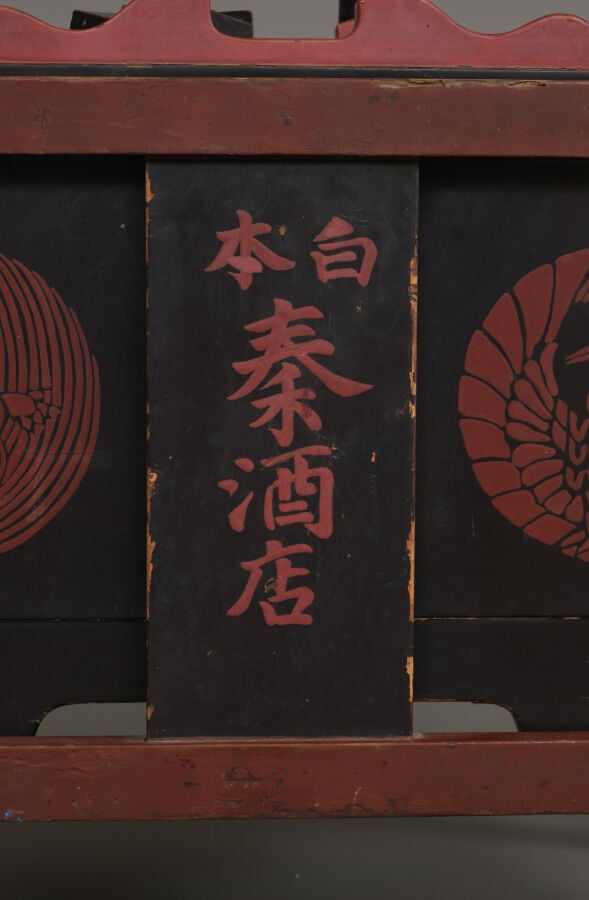 白本
秦酒店